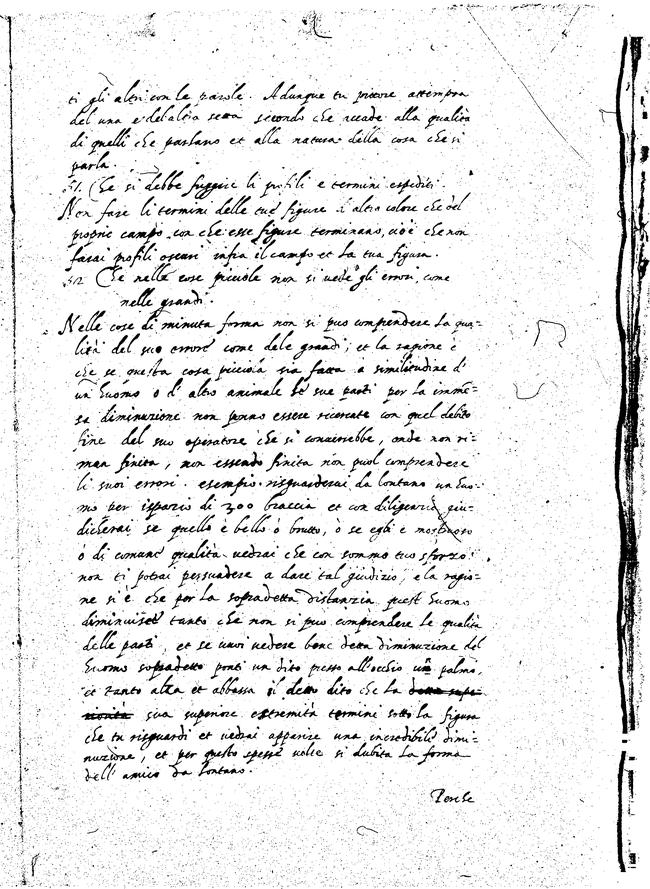 ti gli altri con le parole. Adunque tu pittore attempra
del una e del altra setta secondo che accade alla qualità
di quelli che parlano et alla natura della cosa che si
parla.
51. Che si debbe fuggire li profili e termini espediti.
Non fare li termini delle tue figure d'altro colore che del
proprio campo con che esse figure terminano, cioè che non
farai profili oscuri infra il campo et la tua figura.
52 Che nelle cose piccole non si vede gli errori, come
nelle grandi.
Nelle cose di minuta forma non si puo comprendere la qua=
lità del suo errore come dele grandi; et la ragione è
che se questa cosa piccola sia fatta a similitudine d'
un huomo o d'altro animale le sue parti per la imme=
sa diminuzione non ponno essere ricercate con quel debito
fine del suo operatore che si convirebbe, onde non ri=
man finita, non essendo finita non puoi comprendere
li suoi errori. esempio. risguarderai da lontano un huo=
mo per ispazio di 300 braccia et con diligenzia giu=
dicherai se quello è bello ò brutto, ò se egli è mostruoso
ò di comune qualità. vedrai che con sommo tuo sforzo
non ti potrai persuadere a dare tal giudizio, e la ragio=
ne si è che per la sopradetta distanzia quest huomo
diminuisce tanto che non si puo comprendere le qualità
delle parti, et se vuoi vedere bene detta diminuzione del
huomo sopradetto ponti un dito presso all'occhio un palmo,
et tanto alza et abbassa il detto dito che la
sua superiore estremità termini sotto la figura
che tu risguardi et vedrai apparire una incredibile dimi=
nuzione, et per questo spesse volte si dubita la forma
dell'amico da lontano.
Perche